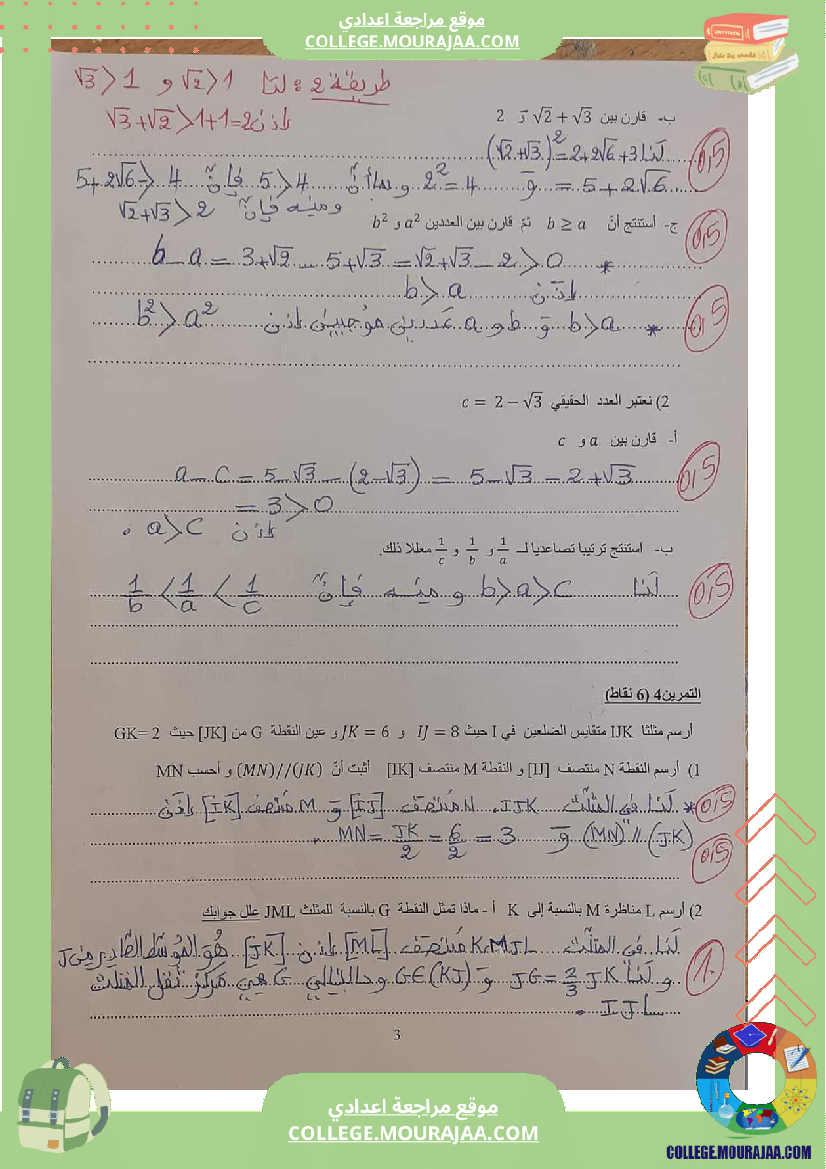 موقع مراجعة اعدادي
COLLEGE.MOURAJAA.COM
طريقة 2 : لنا √2 > 1 و √3 > 1
إذن √3+√2 > 1+1 = 2
ب- قارن بين √2 + √3 و 2
لنا (√2+√3)² = 2+2√6+3
= 5+2√6 و 2² = 4 وبما أنّ 5 > 4 فإنّ 5+2√6 > 4
ومنه فإنّ √2+√3 > 2
0,5
ج- أستنتج أنّ b ≥ a ثمّ قارن بين العددين a² و b²
* b - a = 3+√2 - 5+√3 = √2+√3 - 2 > 0
إذن b > a
0,5
* b > a و b و a عددين موجبين إذن b² > a²
0,5
2) نعتبر العدد الحقيقي c = 2 − √3
أ- قارن بين a و c
a - c = 5-√3 - (2-√3) = 5-√3 - 2+√3
= 3 > 0
إذن a > c .
0,5
ب- استنتج ترتيبا تصاعديا لــ 1/a و 1/b و 1/c معللا ذلك.
لنا b > a > c ومنه فإنّ 1/b < 1/a < 1/c
0,5
التمرين4 (6 نقاط)
أرسم مثلثا IJK متقايس الضلعين في I حيث IJ = 8 و JK = 6 و عين النقطة G من [JK] حيث GK= 2
1) أرسم النقطة N منتصف [IJ] و النقطة M منتصف [IK] أثبت أنّ (MN)//(JK) و أحسب MN
* لنا في المثلث IJK، N منتصف [IJ] و M منتصف [IK] إذن
0,5
(MN) // (JK) و MN = JK/2 = 6/2 = 3 .
0,5
2) أرسم L مناظرة M بالنسبة إلى K أ - ماذا تمثل النقطة G بالنسبة للمثلث JML علل جوابك
لنا في المثلث MJL، K منتصف [ML] إذن [JK] هو الموسط الصادر من J
و لنا JG = 2/3 JK و G∈(KJ) وبالتالي G هي مركز ثقل المثلث
IJL .
1.
3
موقع مراجعة اعدادي
COLLEGE.MOURAJAA.COM
COLLEGE.MOURAJAA.COM